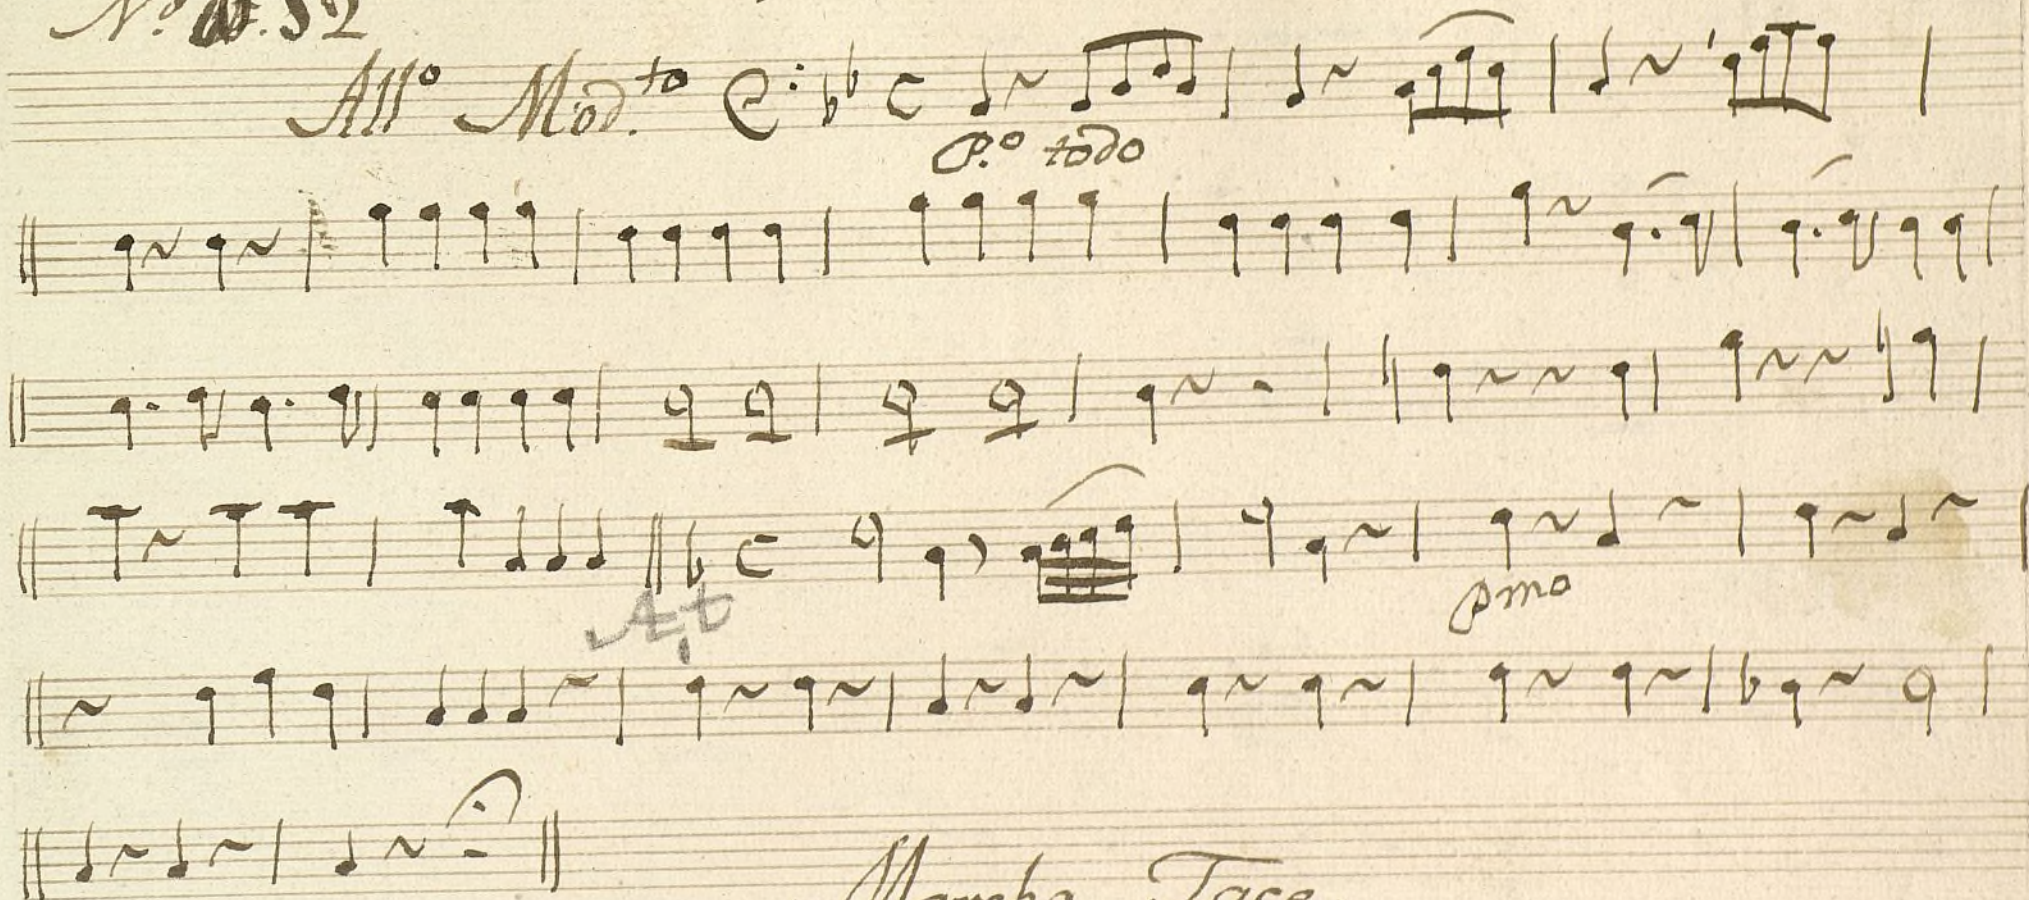 Nº 32
Allº Mod.to
P.º todo
At
pmo
Marcha Tace